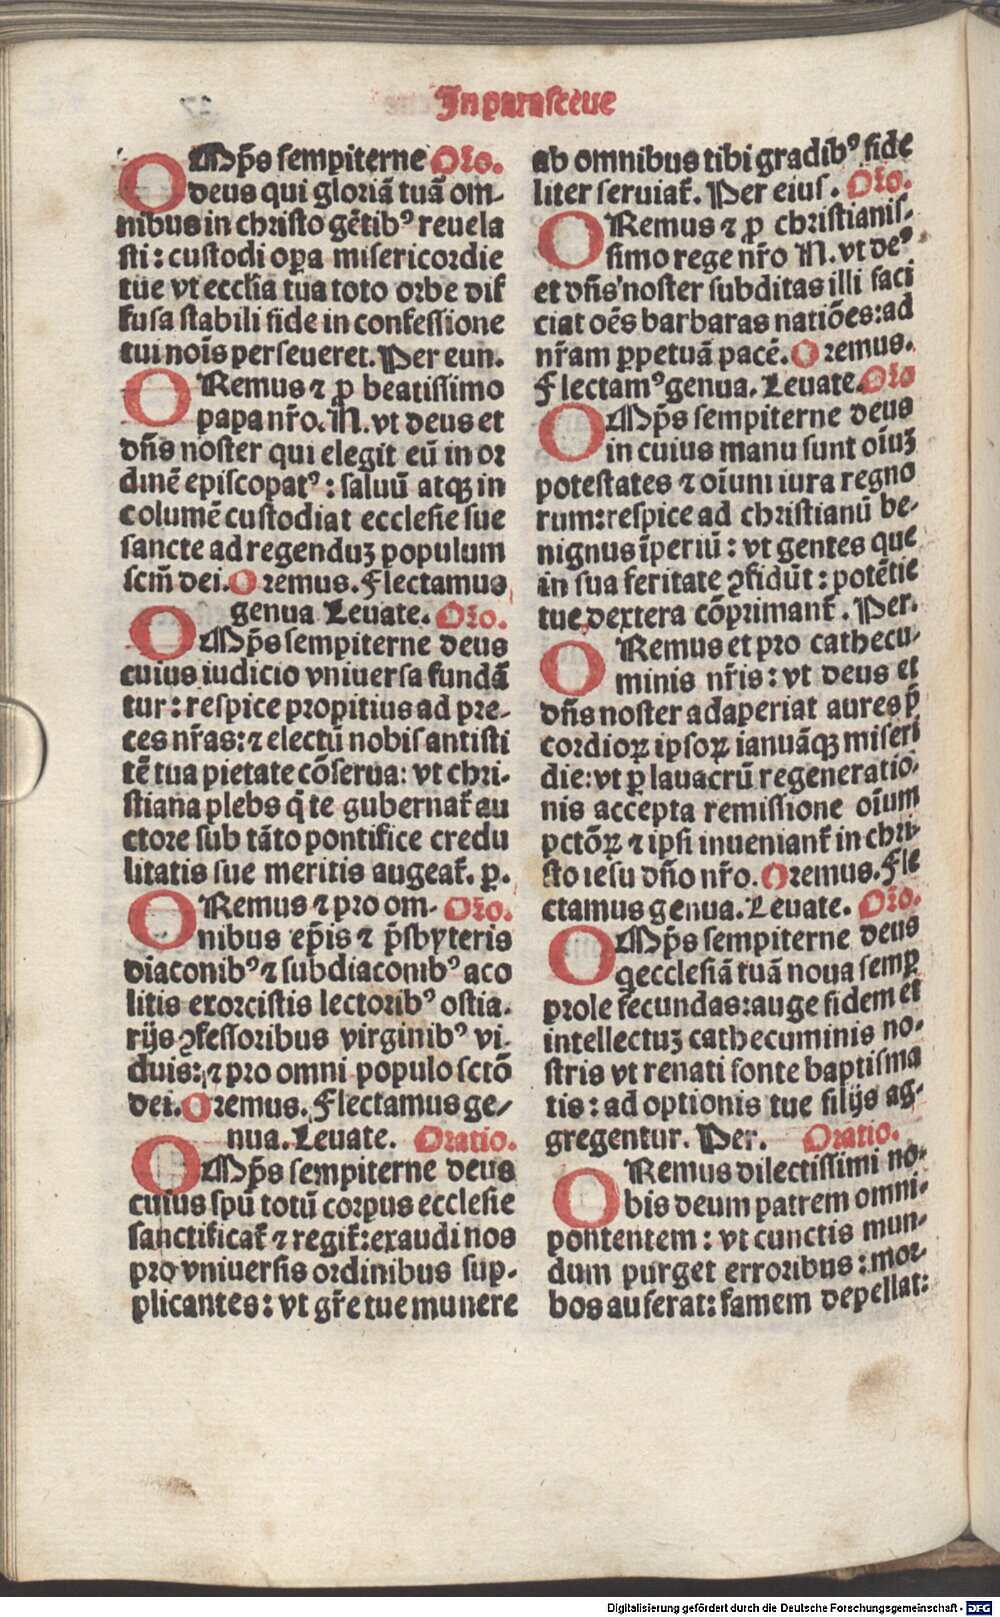 In parasceue
OMp̄s sempiterne Oꝛo.
deus qui gloriā tuā om-
nibus in christo gētibꝰ reuela
sti: custodi oꝑa misericoꝛdie
tue vt ecclīa tua toto oꝛbe dif
fusa stabili fide in confessione
tui noīs perseueret. Per eun.
ORemus ⁊ ꝓ beatissimo
papa nr̄o. N. vt deus et
dn̄s noster qui elegit eū in oꝛ
dinē episcopatꝰ: saluū atqꝫ in
columē custodiat ecclesie sue
sancte ad regenduꝫ populum
scm̄ dei. Oremus. Flectamus
genua Leuate. Oꝛo.
OMp̄s sempiterne deus
cuius iudicio vniuersa fundā
tur: respice pꝛopitius ad pꝛe-
ces nr̄as: ⁊ electū nobis antisti
tē tua pietate cōserua: vt chri-
stiana plebs q̄ te gubernat̄ au
ctoꝛe sub tāto pontifice credu
litatis sue meritis augeat̄. ꝑ.
ORemus ⁊ pro om- Oꝛo.
nibus ep̄is ⁊ p̄sbyteris
diaconibꝰ ⁊ subdiaconibꝰ aco
litis exoꝛcistis lectoꝛibꝰ ostia-
rijs ꝯfessoꝛibus virginibꝰ vi-
duis: ⁊ pꝛo omni populo sctō
dei. Oremus. Flectamus ge/
nua. Leuate. Oratio.
OMp̄s sempiterne deus
cuius spū totū coꝛpus ecclesie
sanctificat̄ ⁊ regit̄: exaudi nos
pꝛo vniuersis oꝛdinibus sup-
plicantes: vt gr̄e tue munere
ab omnibus tibi gradibꝰ fide
liter seruiat̄. Per eius. Oꝛo.
ORemus ⁊ ꝓ christianis-
simo rege nr̄o N. vt deꝰ
et dn̄s noster subditas illi faci
ciat oēs barbaras natiōes: ad
nr̄am ꝑpetuā pacē. Oremus.
Flectamꝰ genua. Leuate. Oꝛo
OMp̄s sempiterne deus
in cuius manu sunt oīuꝫ
potestates ⁊ oīum iura regno
rum: respice ad christianū be-
nignus īperiū: vt gentes que
in sua feritate ꝯfidūt: potētie
tue dextera cōprimant̄. Per.
ORemus et pꝛo cathecu-
minis nr̄is: vt deus et
dn̄s noster adaperiat aures p̄
coꝛdioꝝ ipsoꝝ ianuāqꝫ miseri
die: vt ꝑ lauacrū regeneratio-
nis accepta remissione oīum
pctōꝝ ⁊ ipsi inueniant̄ in chri-
sto iesu dn̄o nr̄o. Oremus. Fle
ctamus genua. Leuate. Oꝛo.
OMp̄s sempiterne deus
q ecclesiā tuā noua semꝑ
pꝛole fecundas: auge fidem et
intellectuꝫ cathecuminis no-
stris vt renati fonte baptisma
tis: adoptionis tue filijs ag-
gregentur. Per. Oratio.
ORemus dilectissimi no-
bis deum patrem omni-
pontentem: vt cunctis mun-
dum purget erroꝛibus: moꝛ-
bos auferat: famem depellat:
Digitalisierung gefördert durch die Deutsche Forschungsgemeinschaft - DFG